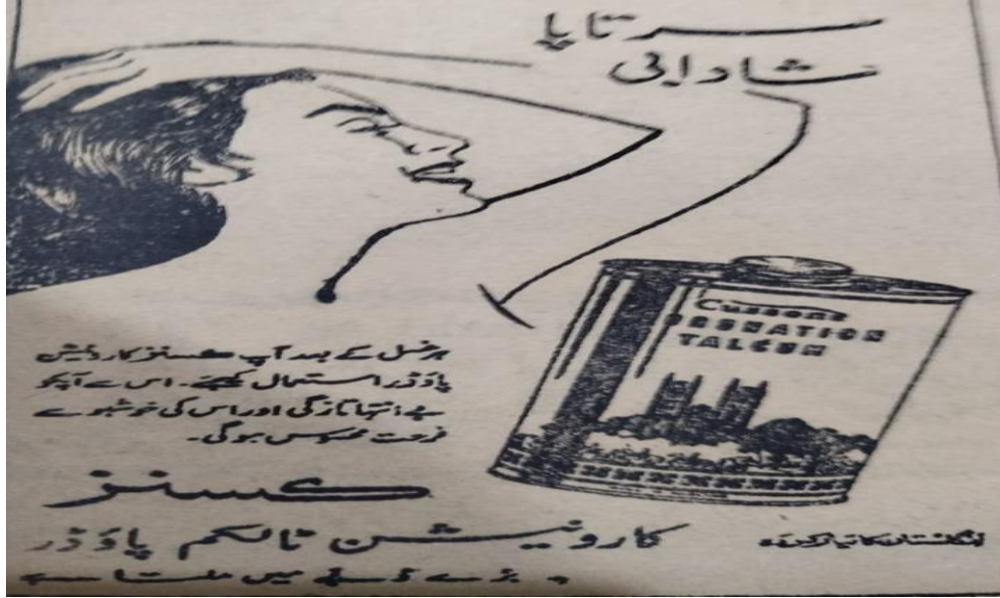 سر تا پا
شادابی
Cussons
CORONATION
TALCUM
ہر غسل کے بعد آپ کسنز کارونیشن
پاؤڈر استعمال کیجئے۔ اس سے آپکو
بے انتہا تازگی اور اس کی خوشبو سے
فرحت محسوس ہوگی۔
کسنز
کارونیشن ٹالکم پاؤڈر
انگلستان کا تیار کردہ
یہ بڑے ڈبے میں ملتا ہے